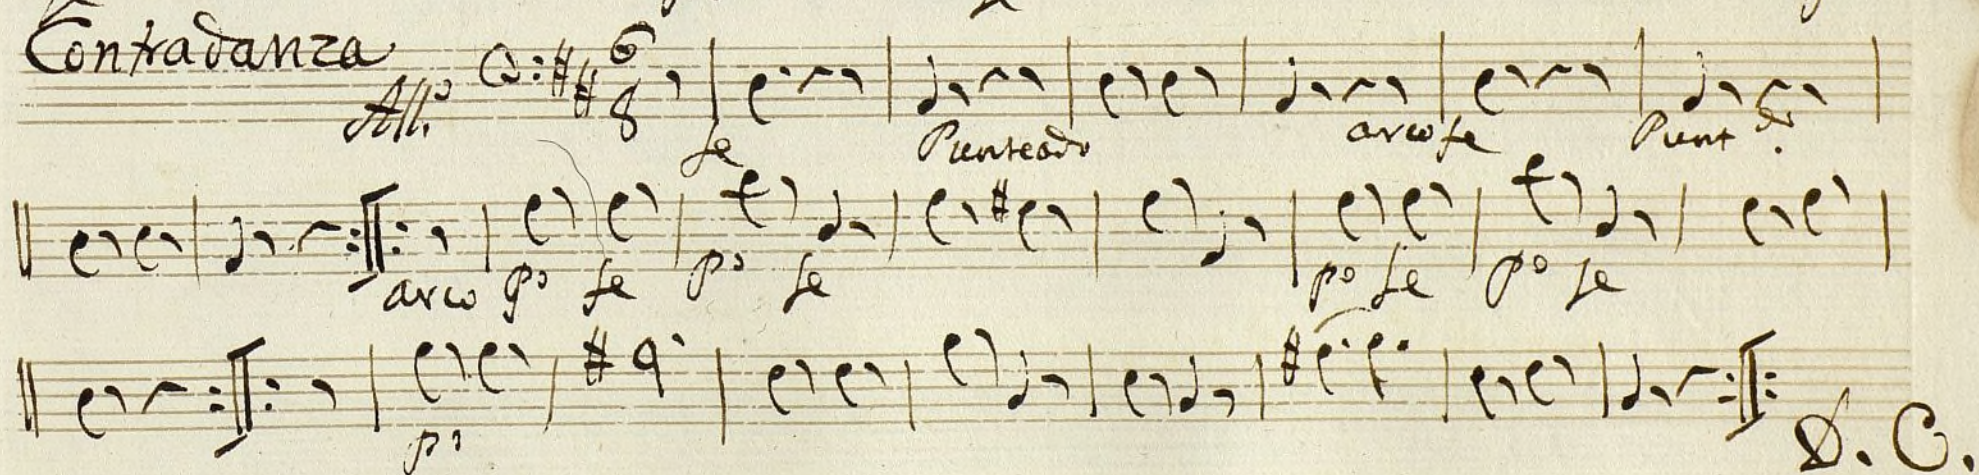 Contradanza
All.º 6 8
fe Punteado arco fe Puntdo.
arco pº fe pº fe pº fe pº fe
pº
D. C.